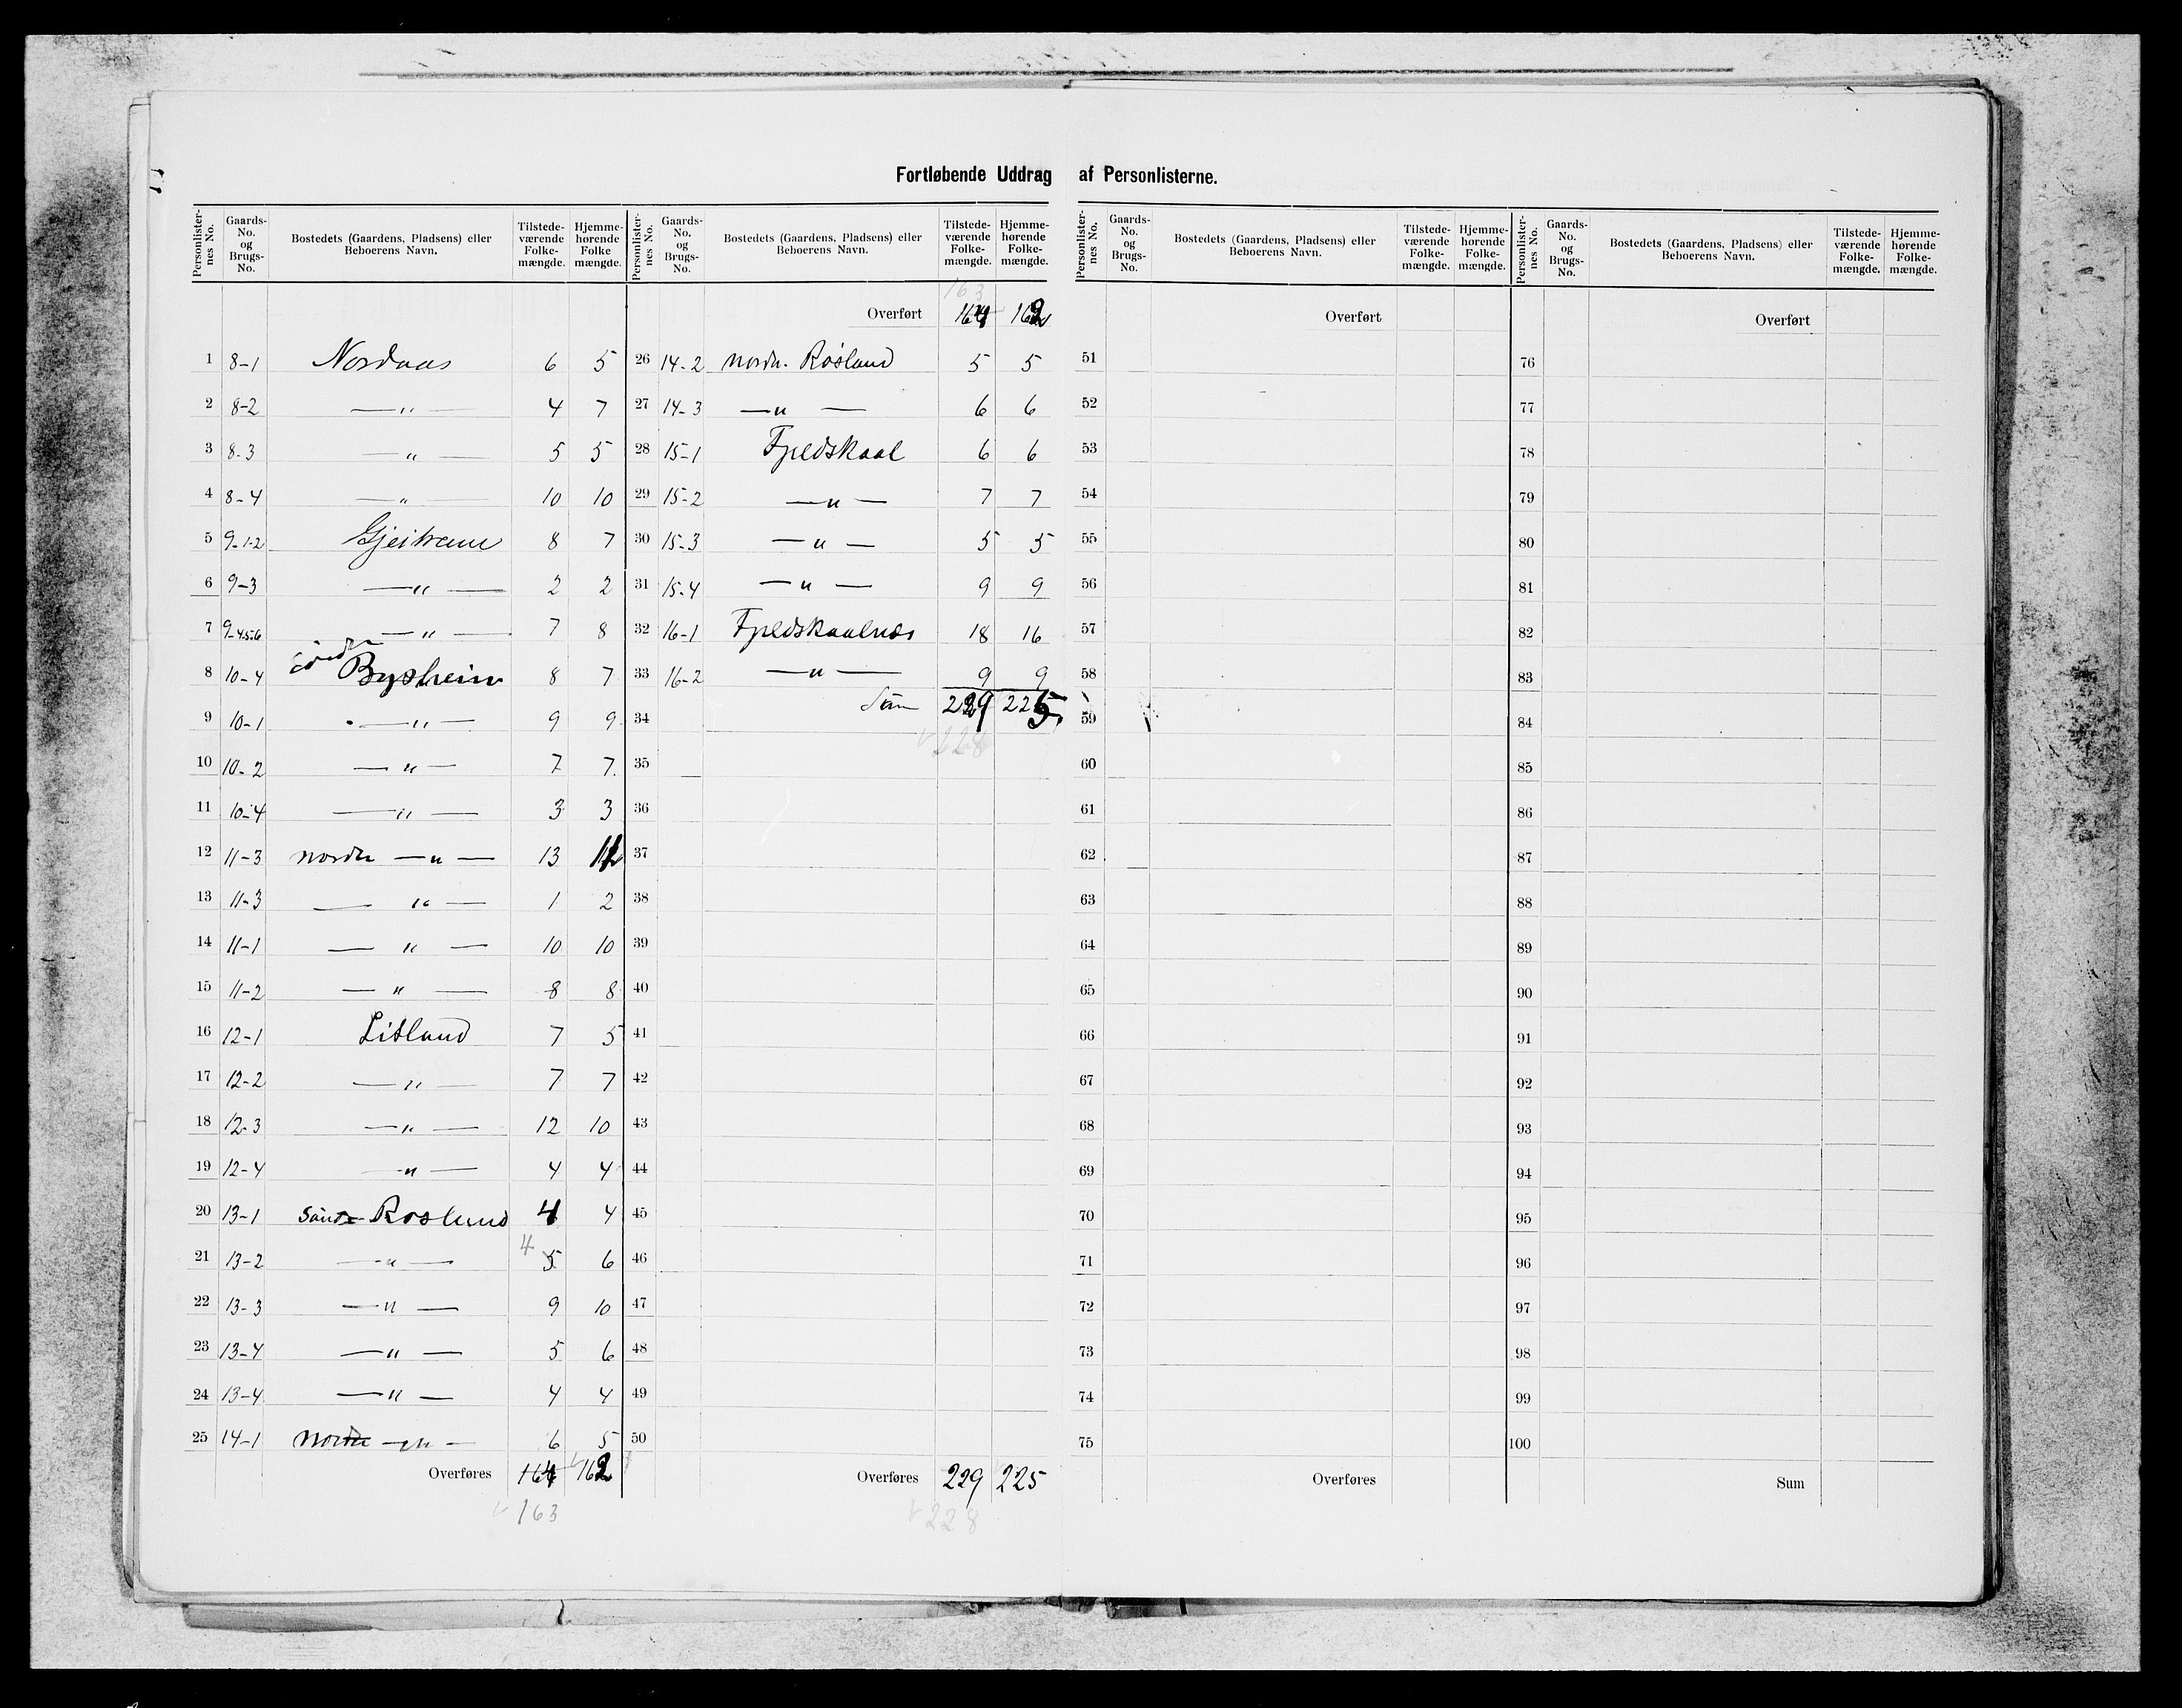 Fortløbende Uddrag af Personlisterne.
Personlister-nes No. Gaards-No. og Brugs-No. Bostedets (Gaardens, Pladsens) eller Beboerens Navn. Tilstede-værende Folke-mængde. Hjemme-hørende Folke mængde.
1 8-1 Nordaas 6 5
2 8-2 —„— 4 7
3 8-3 —„— 5 5
4 8-4 —„— 10 10
5 9-1-2 Gjeitrem 8 7
6 9-3 —„— 2 2
7 9-4.5.6 —„— 7 8
8 10-4 søndre Bysheim 8 7
9 10-1 —„— 9 9
10 10-2 —„— 7 7
11 10-4 —„— 3 3
12 11-3 nordre —„— 13
13 11-3 —„— 1 2
14 11-1 —„— 10 10
15 11-2 —„— 8 8
16 12-1 Litland 7 5
17 12-2 —„— 7 7
18 12-3 —„— 12 10
19 12-4 —„— 4 4
20 13-1 Søndre Røslund 4 4
21 13-2 —„— 4 5 6
22 13-3 —„— 9 10
23 13-4 —„— 5 6
24 13-4 —„— 4 4
25 14-1 Nordre —„— 6 5
Overføres 164 162
163
Personlister-nes No. Gaards-No. og Brugs-No. Bostedets (Gaardens, Pladsens) eller Beboerens Navn. Tilstede-værende Folke-mængde. Hjemme-hørende Folke-mængde.
163
Overført 164 162
26 14-2 nordr. Røsland 5 5
27 14-3 —„— 6 6
28 15-1 Fjeldskaal 6 6
29 15-2 —„— 7 7
30 15-3 —„— 5 5
31 15-4 —„— 9 9
32 16-1 Fjeldskaalnes 18 16
33 16-2 —„— 9 9
34 Sum 229 225
228
35
36
37
38
39
40
41
42
43
44
45
46
47
48
49
50
Overføres 229 225
228
Personlister-nes No. Gaards-No. og Brugs-No. Bostedets (Gaardens, Pladsens) eller Beboerens Navn. Tilstede-værende Folke-mængde. Hjemme-hørende Folke-mængde.
Overført
51
52
53
54
55
56
57
58
59
60
61
62
63
64
65
66
67
68
69
70
71
72
73
74
75
Overføres
Personlister-nes No. Gaards-No. og Brugs-No. Bostedets (Gaardens, Pladsens) eller Beboerens Navn. Tilstede-værende Folke-mængde. Hjemme-hørende Folke-mængde.
Overført
76
77
78
79
80
81
82
83
84
85
86
87
88
89
90
91
92
93
94
95
96
97
98
99
100
Sum